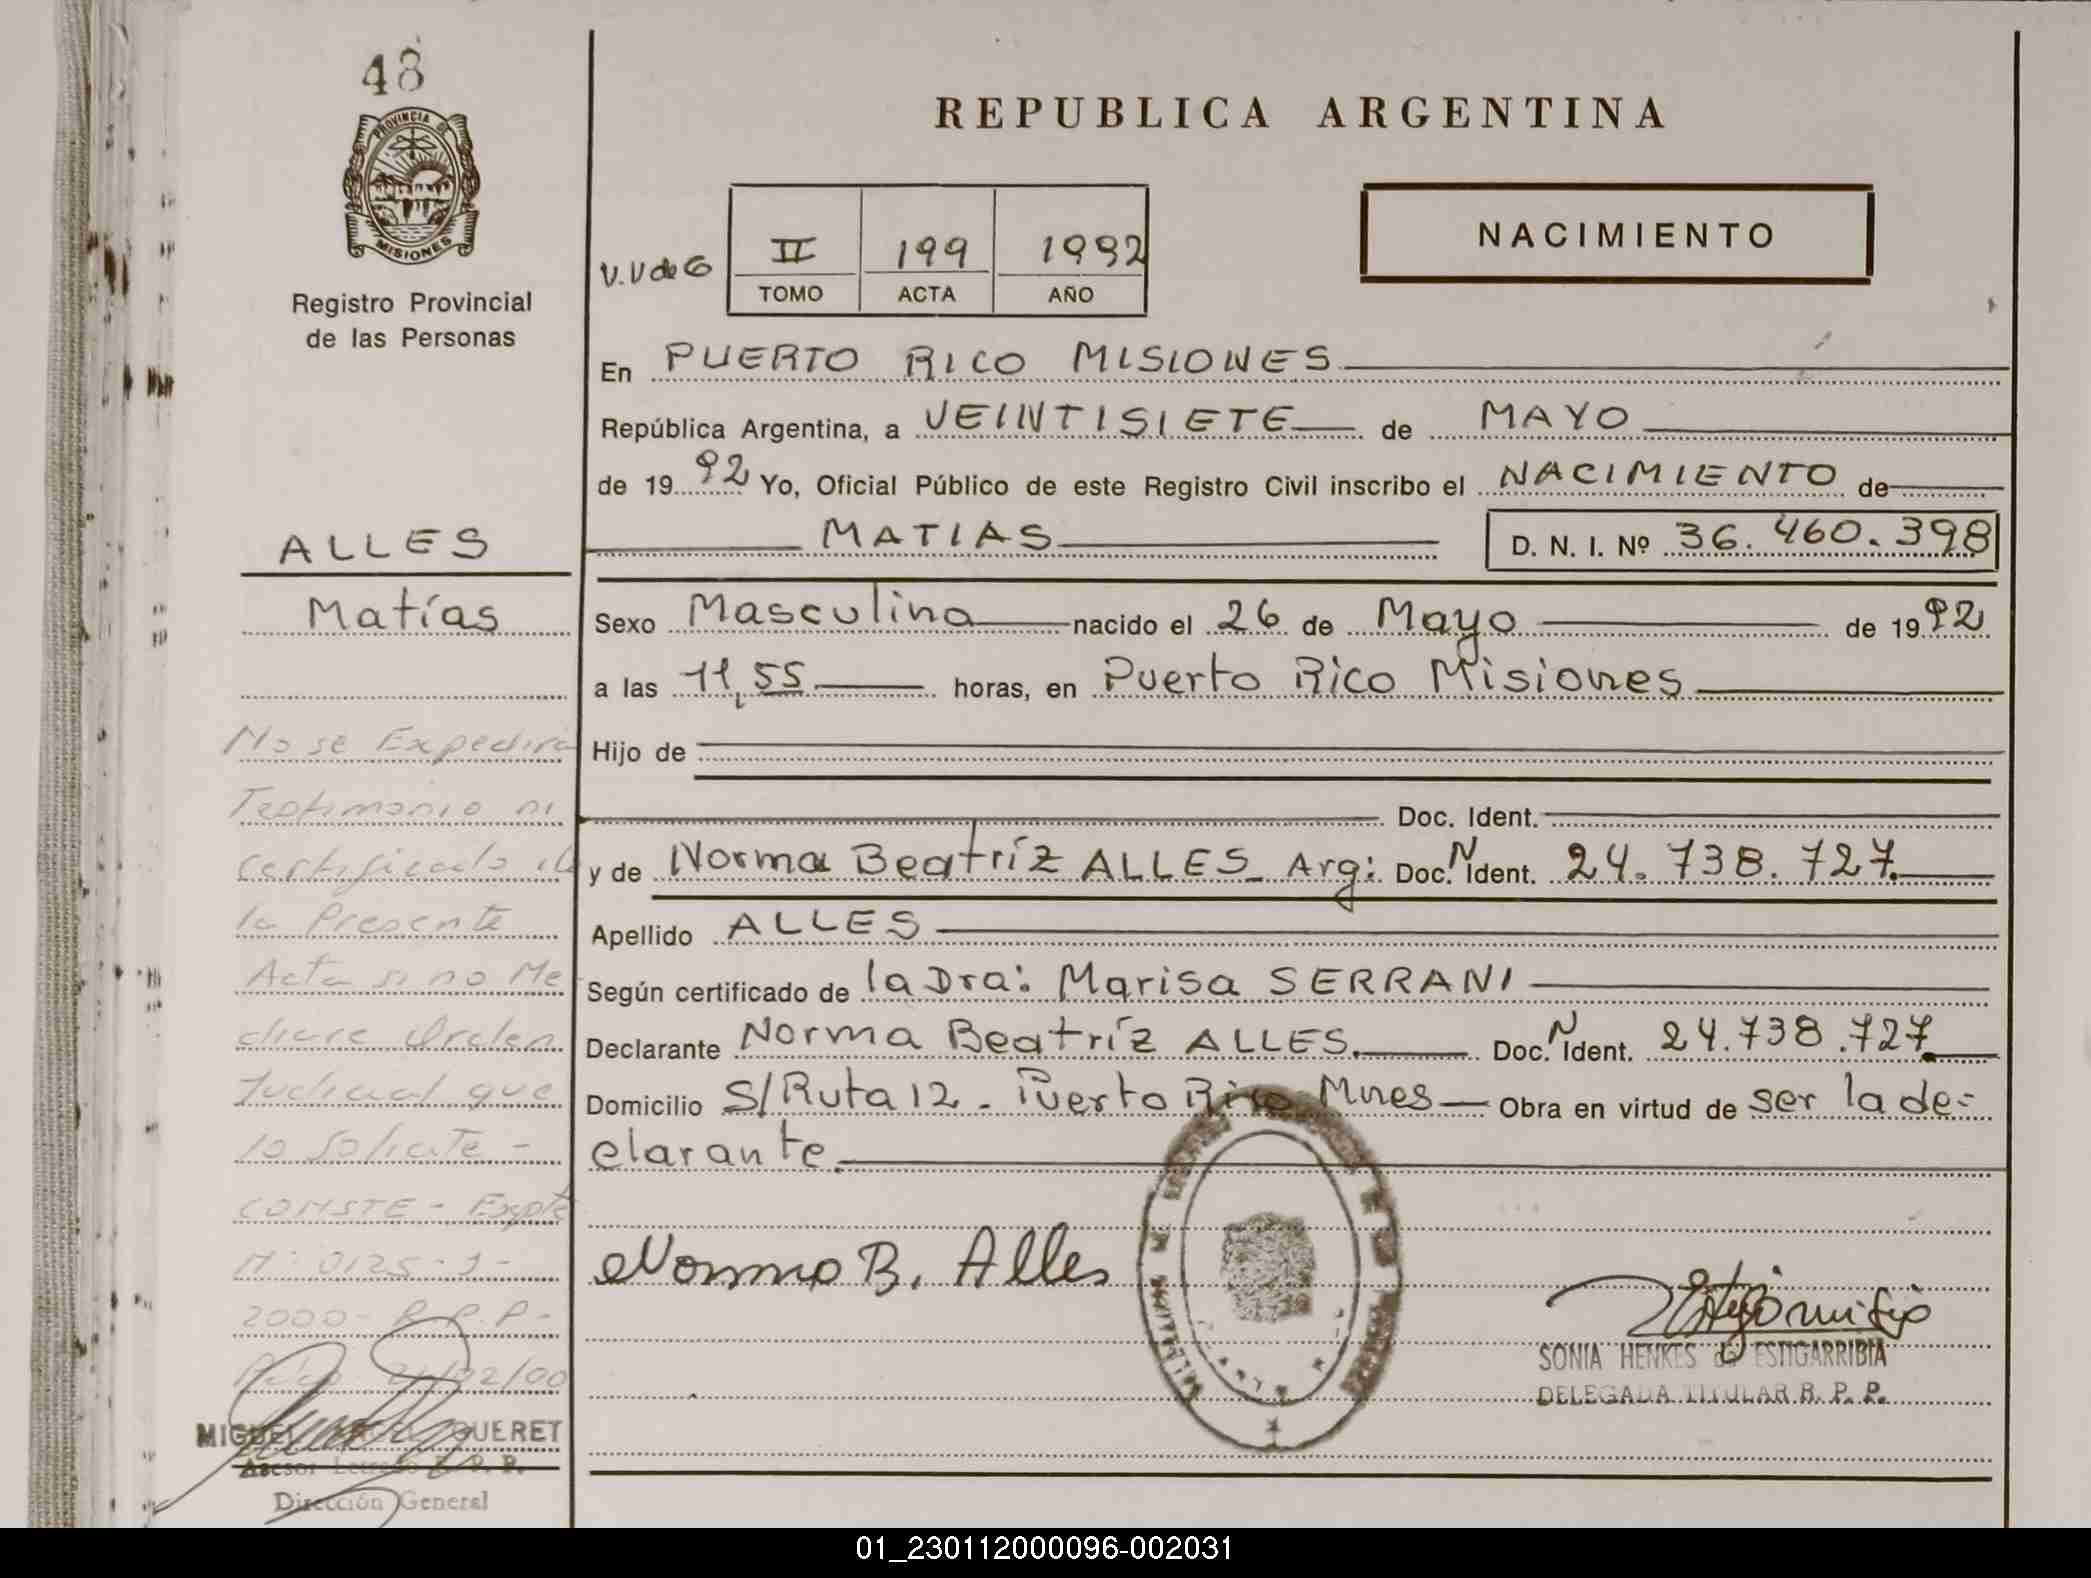 48
PROVINCIA DE
MISIONES
Registro Provincial
de las Personas
REPUBLICA ARGENTINA
NACIMIENTO
V.V de G
II 199 1992
TOMO ACTA AÑO
En PUERTO RICO MISIONES
República Argentina, a VEINTISIETE de MAYO
de 1992 Yo, Oficial Público de este Registro Civil inscribo el NACIMIENTO de
MATIAS D. N. I. Nº 36.460.398
ALLES
Matías
Sexo Masculino nacido el 26 de Mayo de 1992
a las 11,55 horas, en Puerto Rico Misiones
Hijo de
Doc. Ident.
y de Norma Beatríz ALLES Arg: Doc. N Ident. 24.738.727.
Apellido ALLES
Según certificado de la Dra: Marisa SERRANI
Declarante Norma Beatríz ALLES. Doc. N Ident. 24.738.727.
Domicilio S/Ruta 12 - Puerto Rico Mnes Obra en virtud de ser la de-
clarante.
Norma B. Alles
SONIA HENKES de ESTIGARRIBIA
DELEGADA TITULAR R. P. P.
No se Expedira
Testimonio ni
certificado de
la Presente
Acta si no Me
diare Orden
Judicial que
lo Solicite -
CONSTE - Expte
Nº 0125-J-
2000- R.P.P-
21/02/00
MIGUEL QUERET
Asesor Letrado R. P. P.
Dirección General
01_230112000096-002031